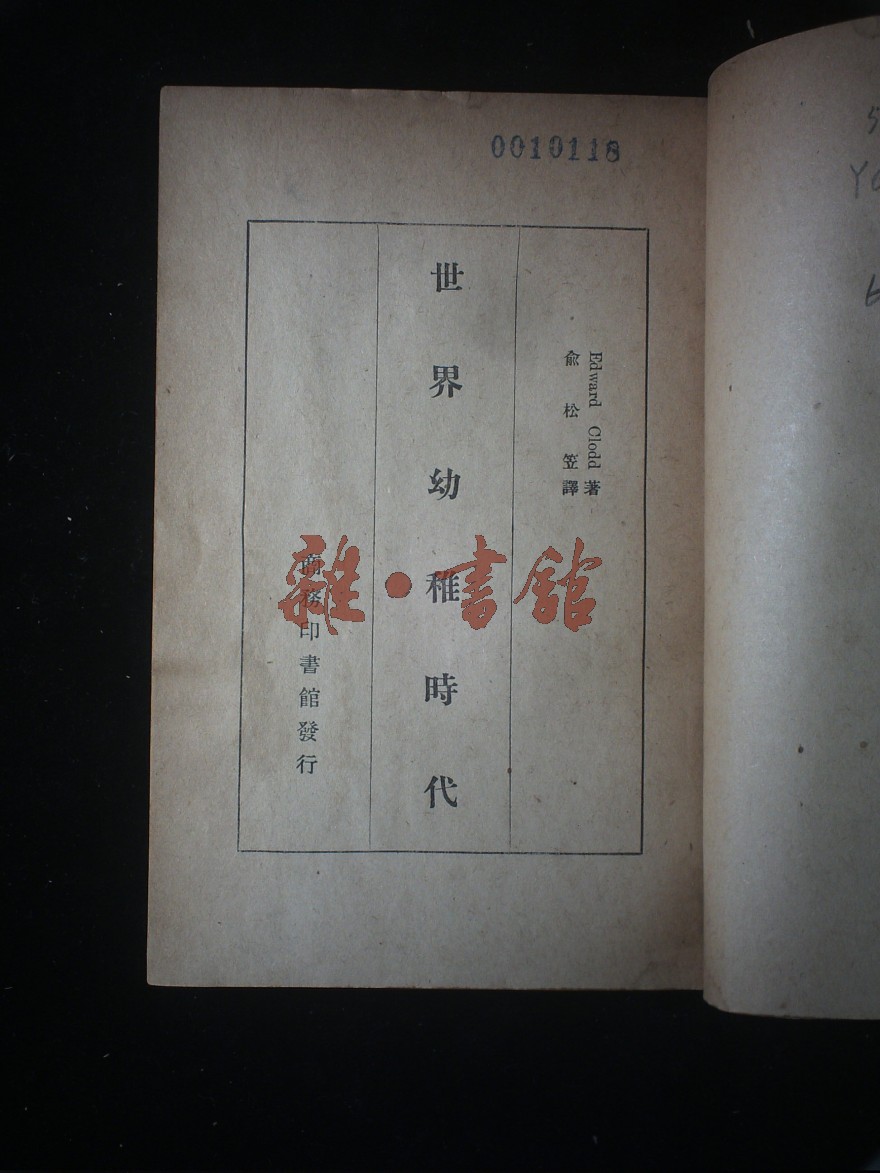 0010118
Edward Clodd 著
俞松笠譯
世界幼稚時代
商務印書館發行
雜·書館